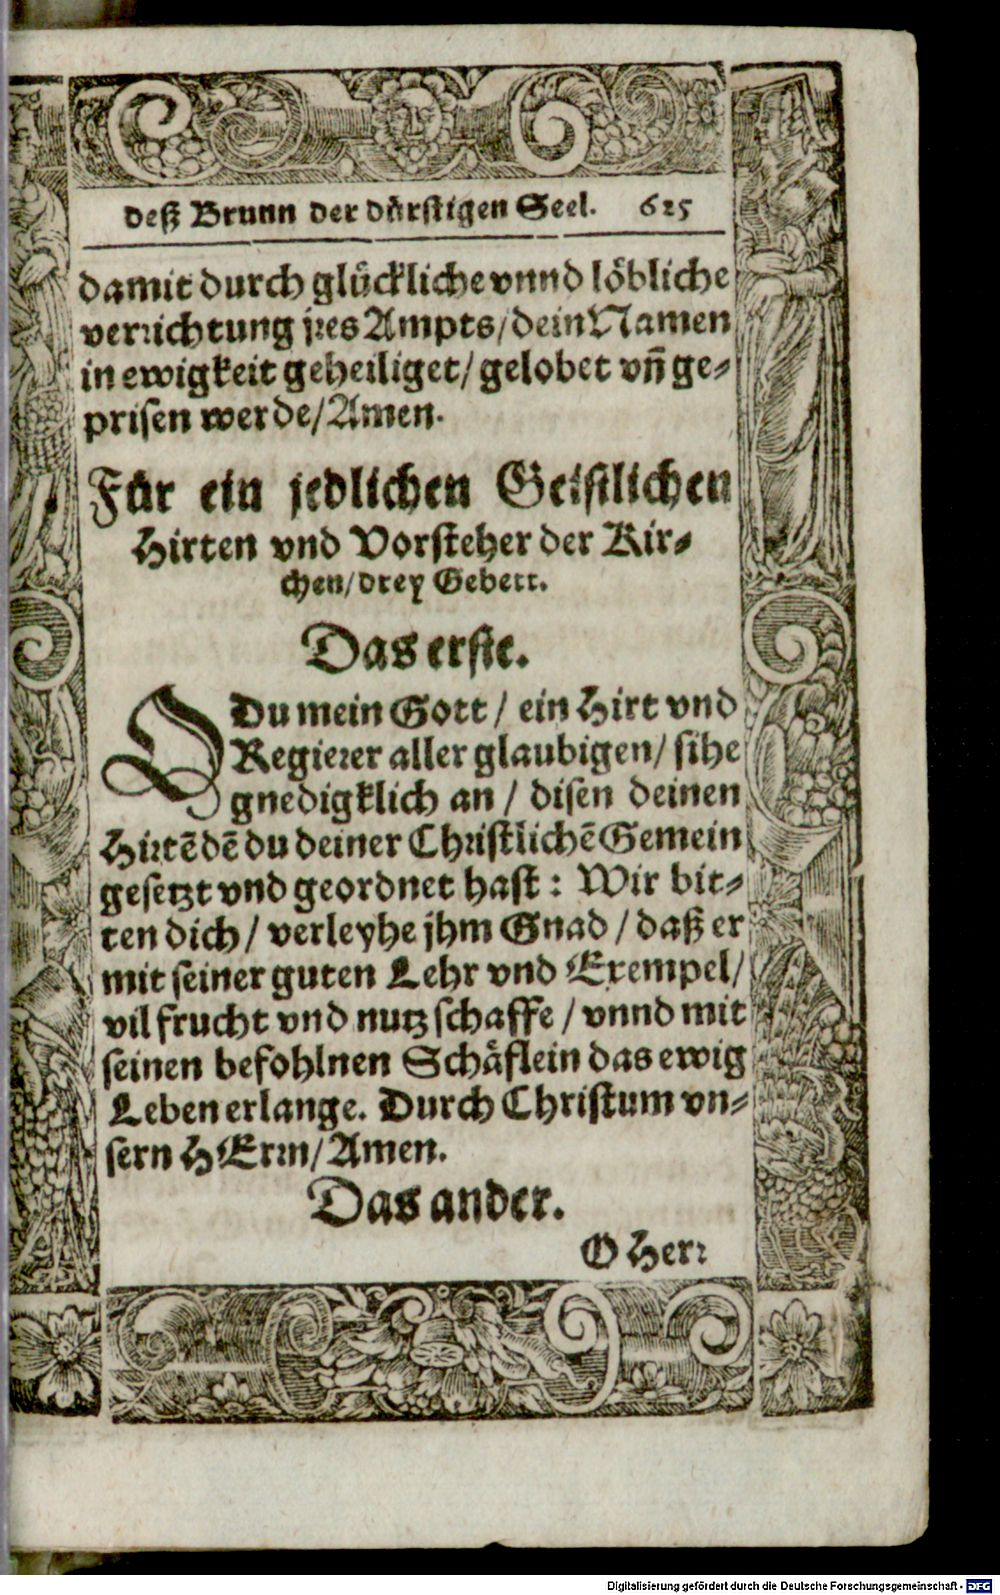 deß Brunn der dürstigen Seel. 625
damit durch glückliche vnnd löbliche
verrichtung jres Ampts/dein Namen
in ewigkeit geheiliget/ gelobet vñ ge-
prisen werde/Amen.
Für ein jedlichen Geistlichen
Hirten vnd Vorsteher der Kir-
chen/drey Gebett.
Das erste.
O Du mein Gott / ein Hirt vnd
Regierer aller glaubigen/ sihe
gnedigklich an / disen deinen
Hirtē dē du deiner Christlichē Gemein
gesetzt vnd geordnet hast : Wir bit-
ten dich / verleyhe jhm Gnad / daß er
mit seiner guten Lehr vnd Exempel/
vil frucht vnd nutz schaffe / vnnd mit
seinen befohlnen Schäflein das ewig
Leben erlange. Durch Christum vn-
sern HErrn/Amen.
Das ander.
O Herr
Digitalisierung gefördert durch die Deutsche Forschungsgemeinschaft - DFG